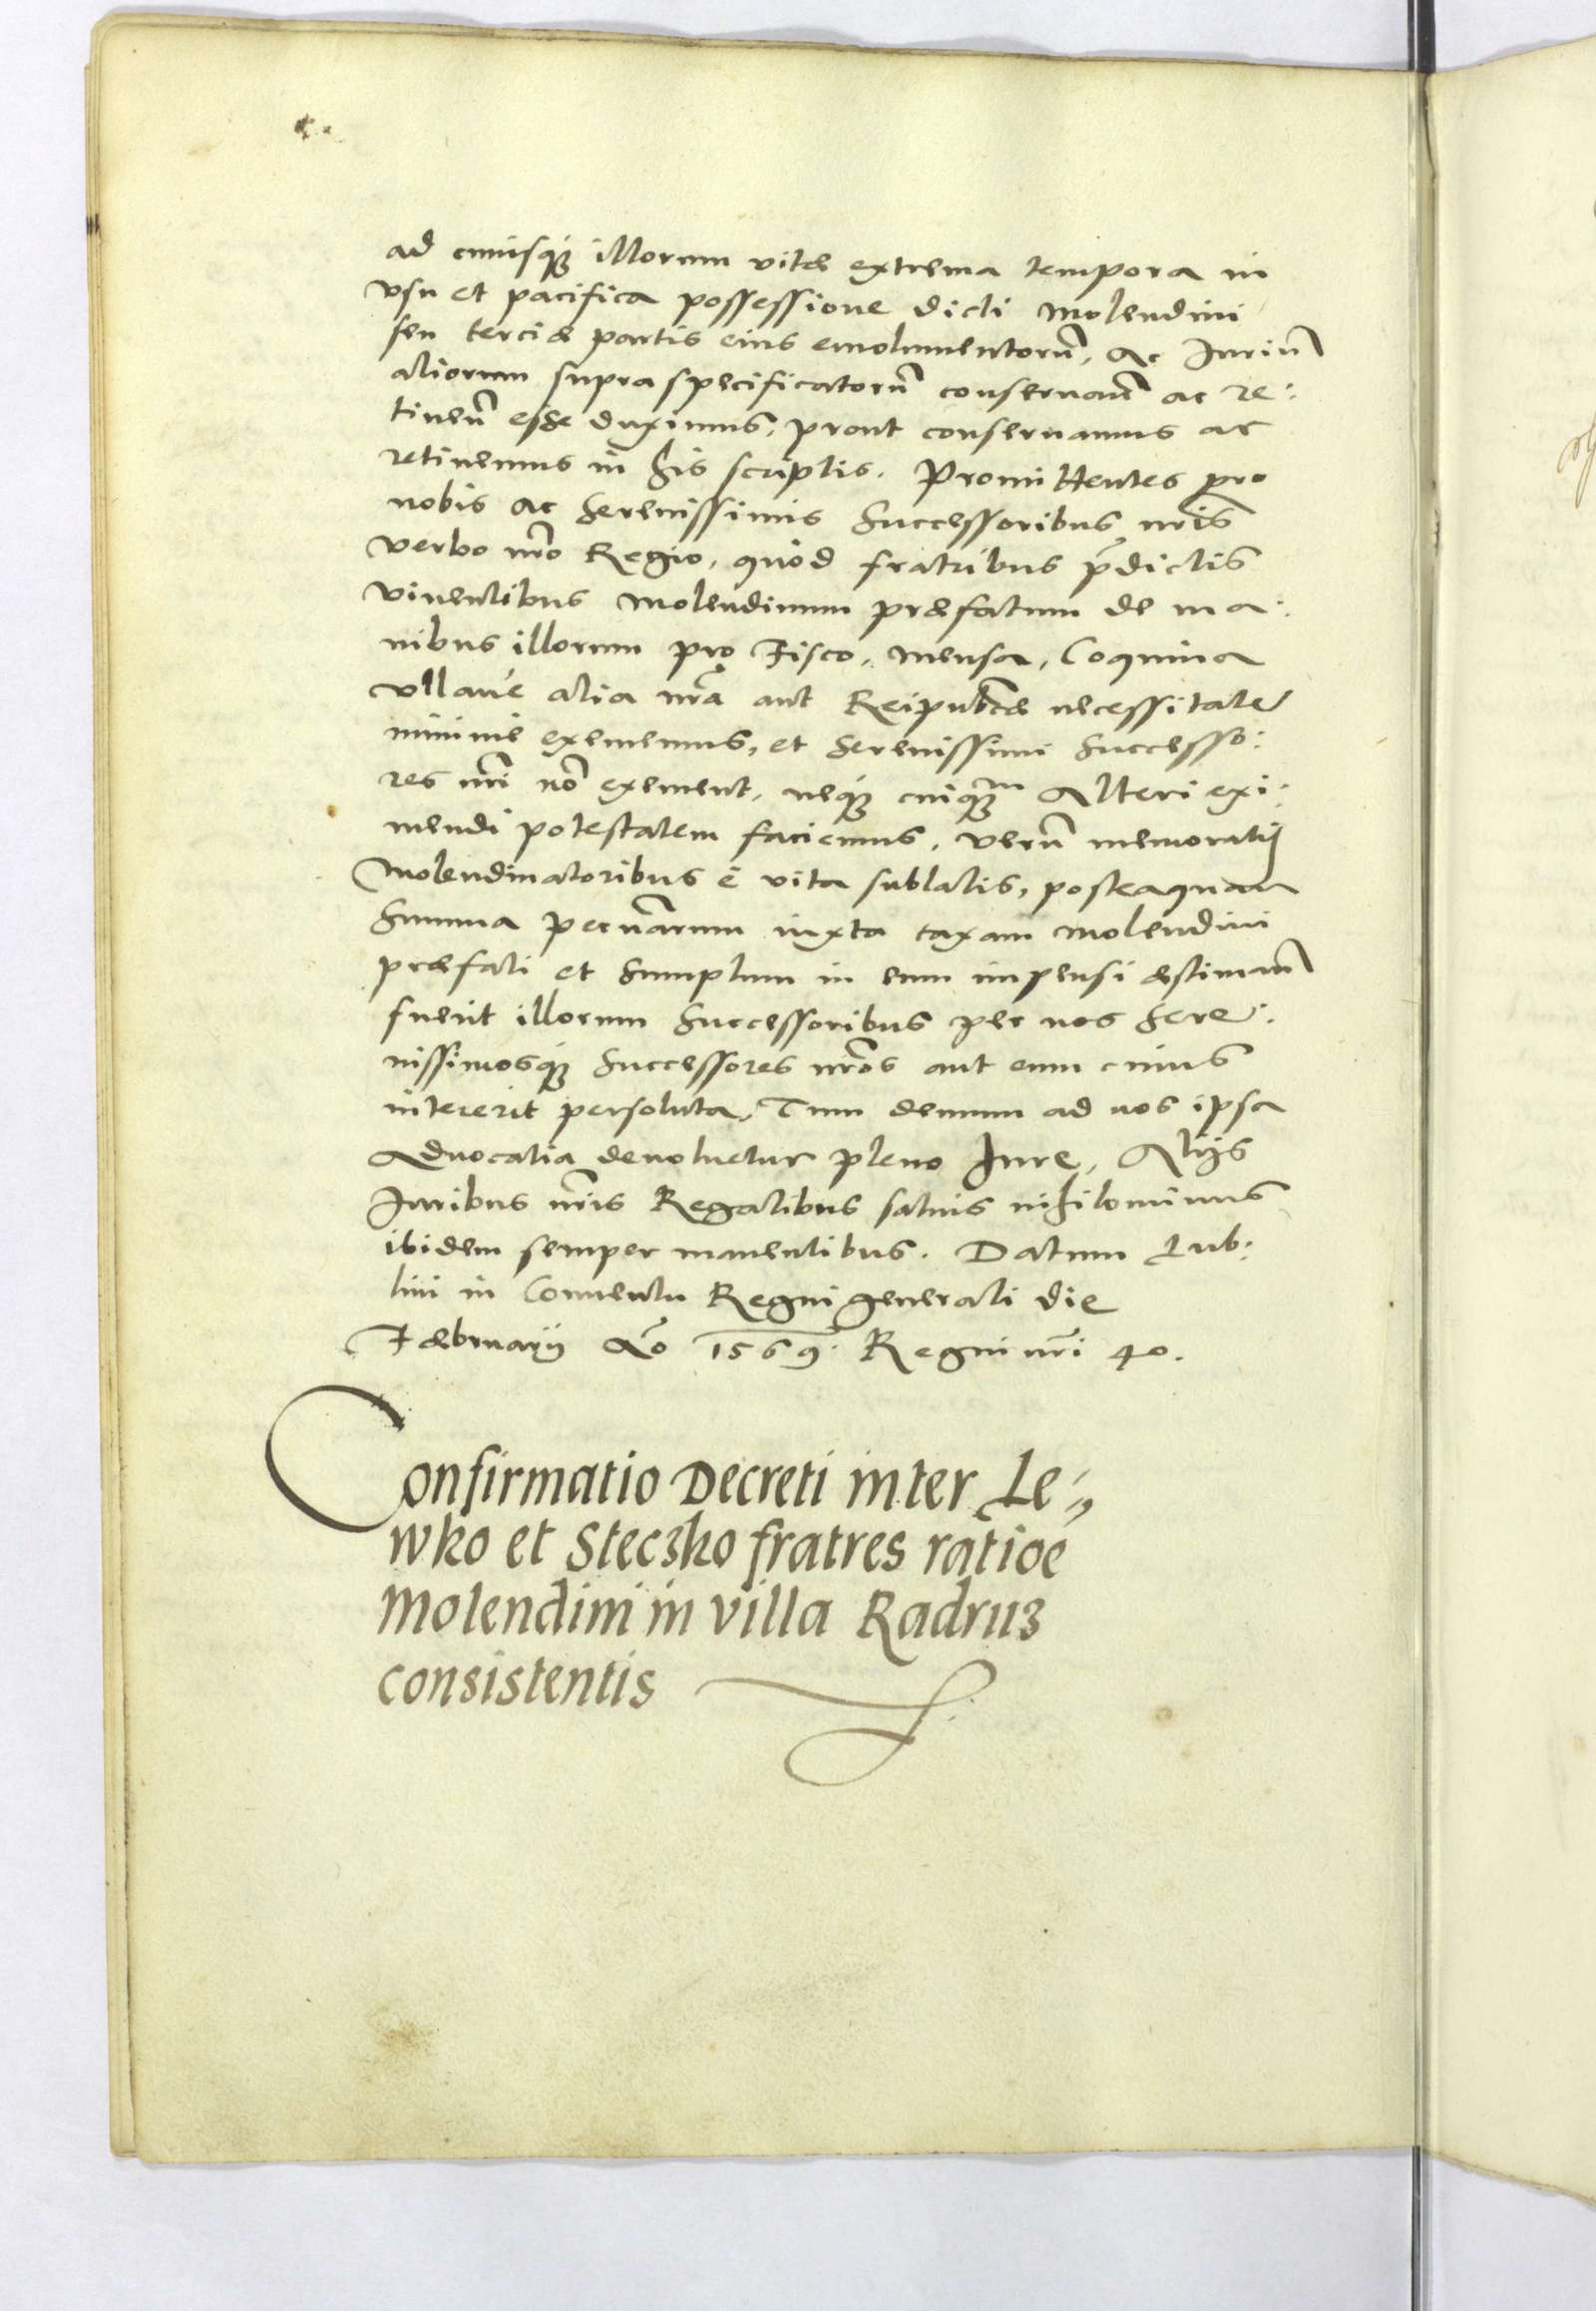 ad cuiusq₃ illorum vitæ extrema tempora in
vsu et pacifica possessione dicti Molendini
seu terciæ partis eius emolumentorũ, ac Iuriũ
aliorum supra specificatorũ conseruan̄ ac re:
tinen̄ esse duximus, prout conseruamus ac
retinemus in his scriptis. Promittentes pro
nobis ac Serenissimis Successoribus nr̄is
verbo nr̄o Regio, quòd fratribus p̄dictis
viuentibus Molendinum præfatum de ma:
nibus illorum pro Fisco, Mensa, Coquina
vllaue alia nr̄a aut Reipub̄cæ necessitate
minime eximemus, et Serenissimi Successo:
res nr̄i nō eximent, neq₃ cuiq₃m Alteri exi:
mendi potestatem faciemus, verũ memoratis
Molendinatoribus è vita sublatis, posteaquam
Summa pecun̄arum iuxta taxam Molendini
præfati et Sumptum in eum impensi æstiman̄
fuerit illorum Successoribus per nos Sere:
nissimosq₃ Successores nr̄os aut eum cuius
intererit persoluta, Tum demum ad nos ipsa
Aduocatia deuoluetur pleno Iure, Alijs
Iuribus nr̄is Regalibus saluis nihilominus
ibidem semper manentibus. Datum Lub:
lini in Conuentu Regni generali die
Fæbruarij Aō 1569. Regni nr̄i 40.
Confirmatio Decreti inter Le:
wko et Steczko fratres ratioē
Molendini in villa Radruz
consistentis